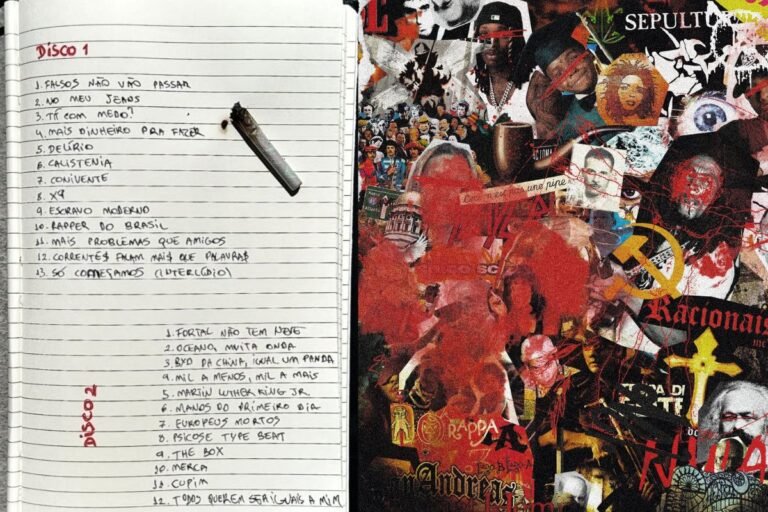 DISCO 1
1. FALSOS NÃO VÃO PASSAR
2. NO MEU JEANS
3. TÁ COM MEDO?
4. MAIS DINHEIRO PRA FAZER
5. DELÍRIO
6. CALISTENIA
7. CONIVENTE
8. X9
9. ESCRAVO MODERNO
10. RAPPER DO BRASIL
11. MAIS PROBLEMAS QUE AMIGOS
12. CORRENTE$ FALAM MAI$ QUE PALAVRA$
13. SÓ COMEÇAMOS (INTERLÚDIO)
DISCO 2
1. FORTAL NÃO TEM NEVE
2. OCEANO, MUITA ONDA
3. BYD DA CHINA, IGUAL UM PANDA
4. MIL A MENOS, MIL A MAIS
5. MARTIN LUTHER KING JR.
6. MANOS DO PRIMEIRO DIA
7. EUROPEUS MORTOS
8. PSICOSE TYPE BEAT
9. THE BOX
10. MERCA
11. CUPIM
12. TODOS QUEREM SER IGUAIS A MIM
SEPULTURA
une pipe
Racionais
mc's
O RAPPA
Andreas